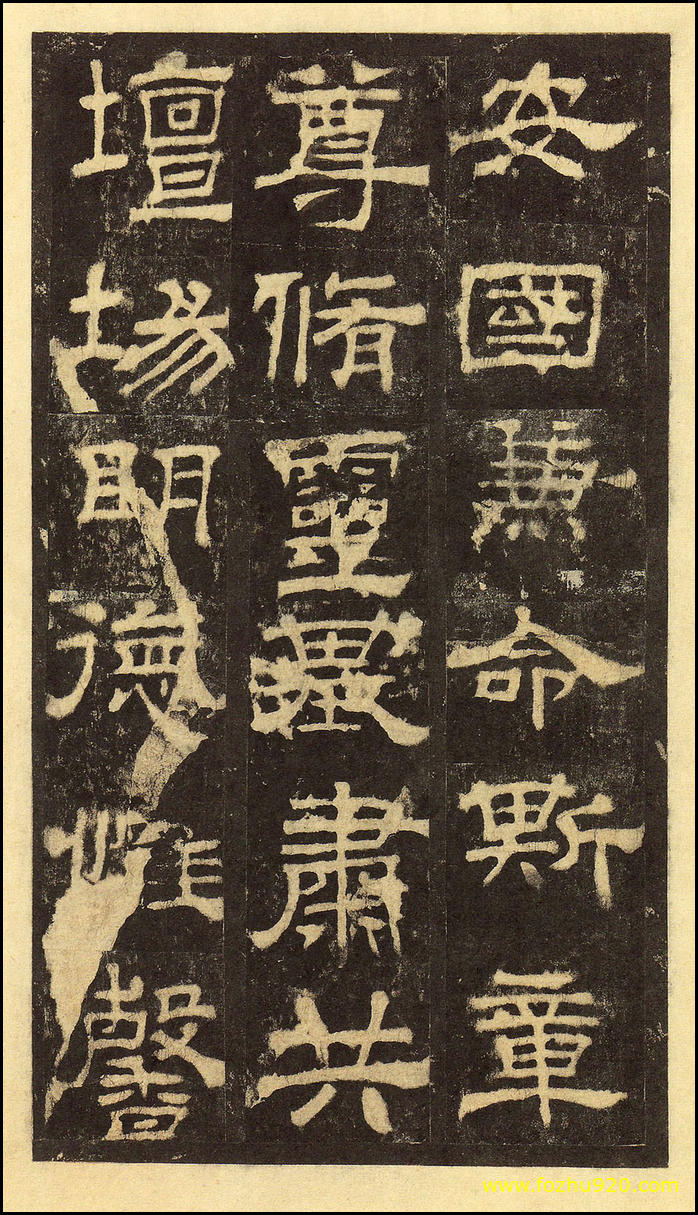 安國兼命斯章
尊脩靈基肅共
壇場眀德惟馨
www.fozhu920.com